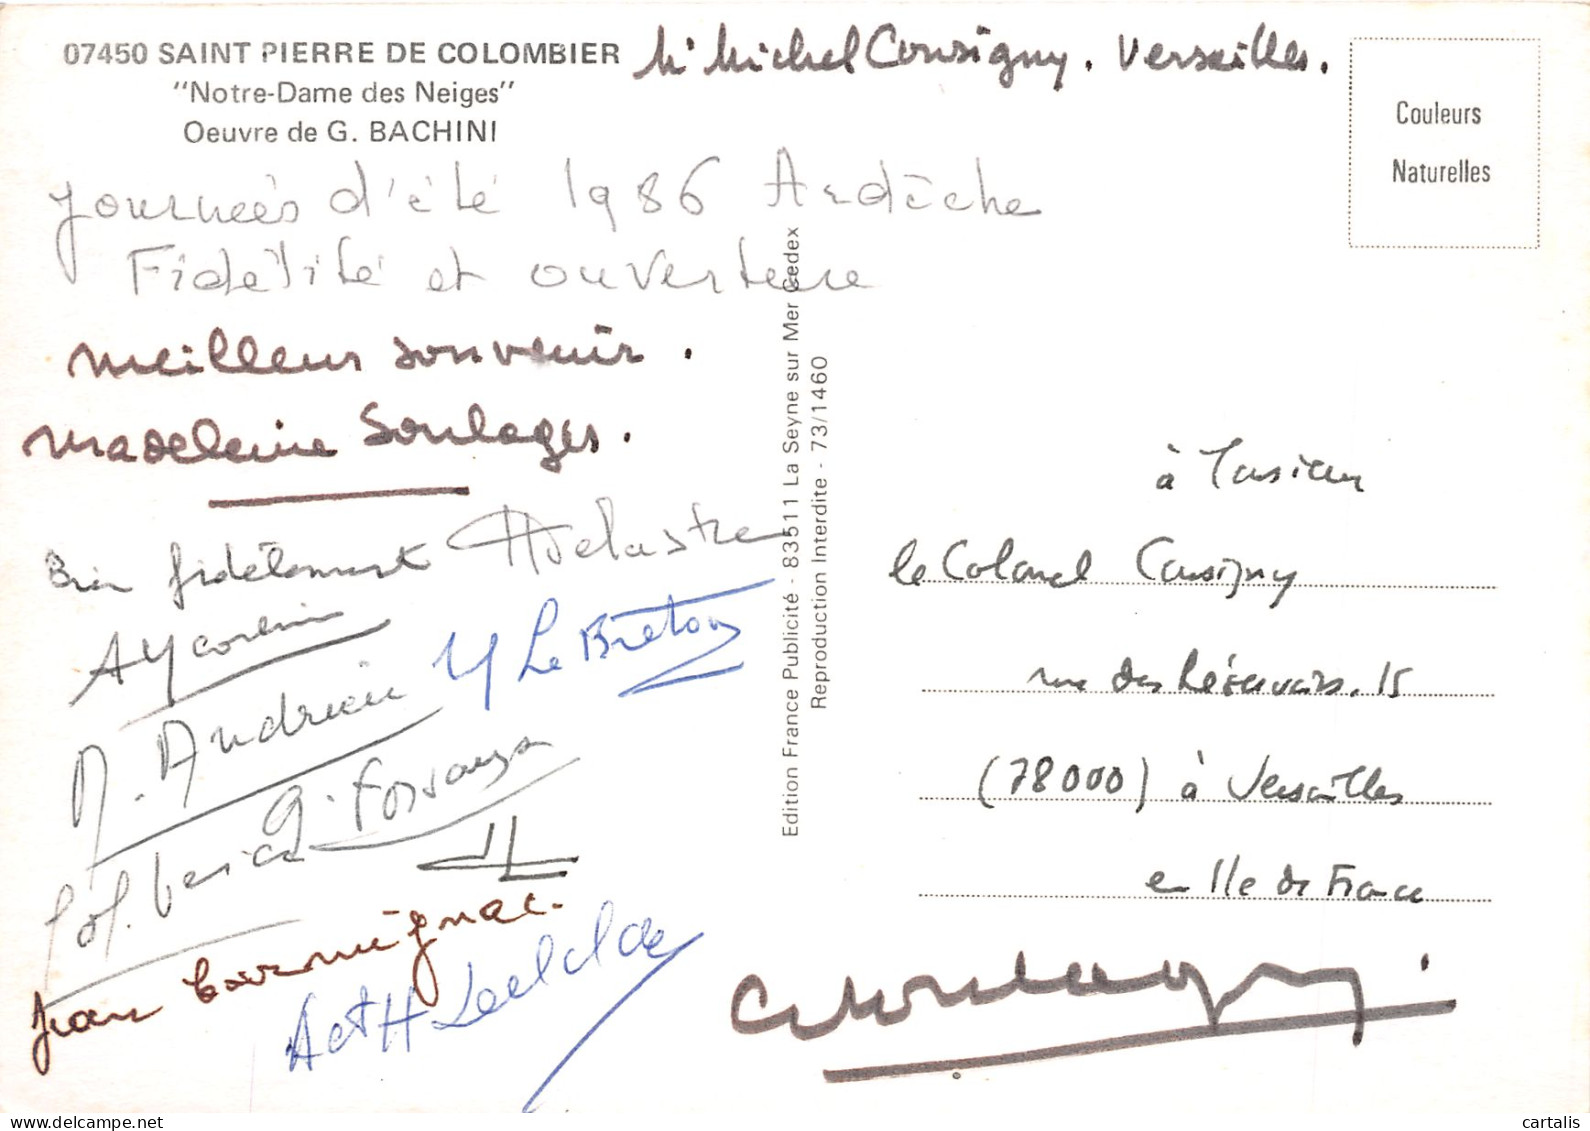 07450 SAINT PIERRE DE COLOMBIER
"Notre-Dame des Neiges"
Oeuvre de G. BACHINI
Mr Michel Consigny. Versailles.
Couleurs
Naturelles
Journées d'été 1986 Ardèche
Fidélité et ouverture
meilleur souvenir.
madeleine Soulages.
Bien fidèlement Delastre
AYcorbin
Y Le Breton
A. Andrieu
G. Forsans
Jean Cormignac.
A et H
Edition France Publicité - 83511 La Seyne sur Mer Cedex
Reproduction Interdite - 73/1460
à
le Colonel Consigny
rue des Réservoirs. 15
(78000) à Versailles
en Ile de France